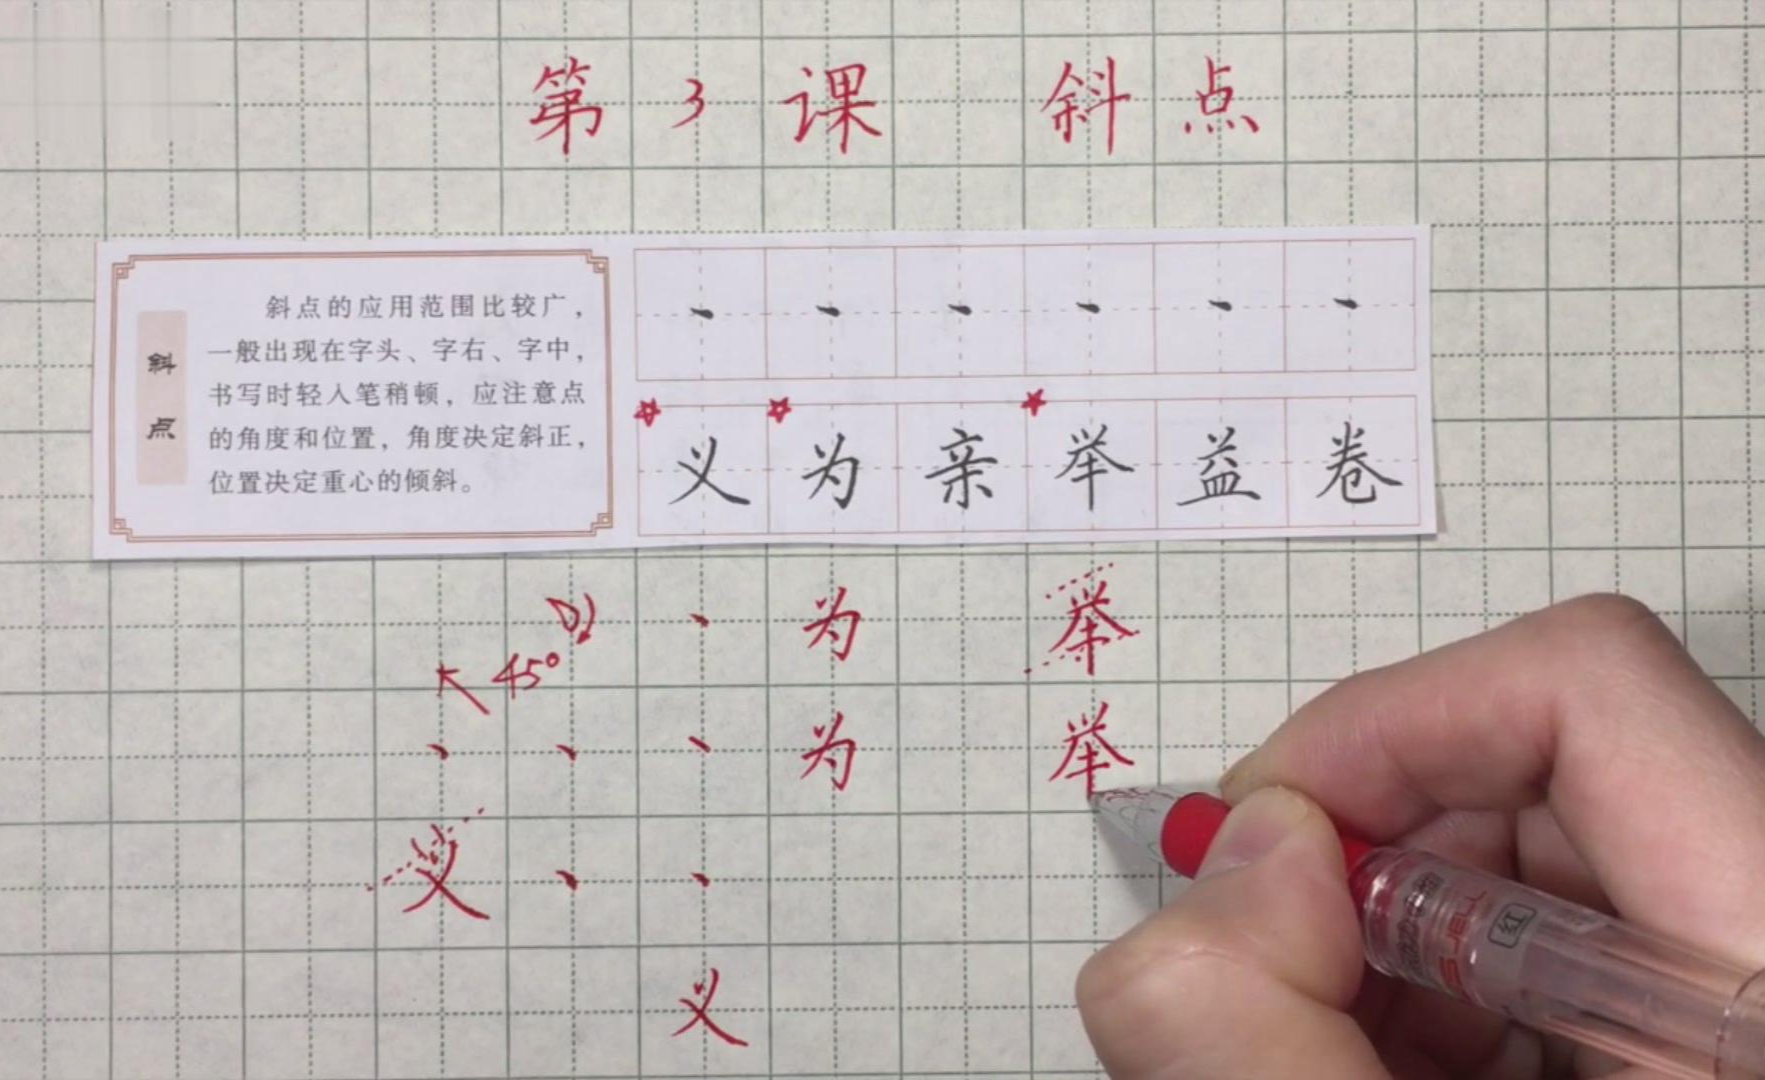 第3课 斜点
斜点
斜点的应用范围比较广，
一般出现在字头、字右、字中，
书写时轻入笔稍顿，应注意点
的角度和位置，角度决定斜正，
位置决定重心的倾斜。
义为亲举益卷
为 举
45°
为 举
义
义
红